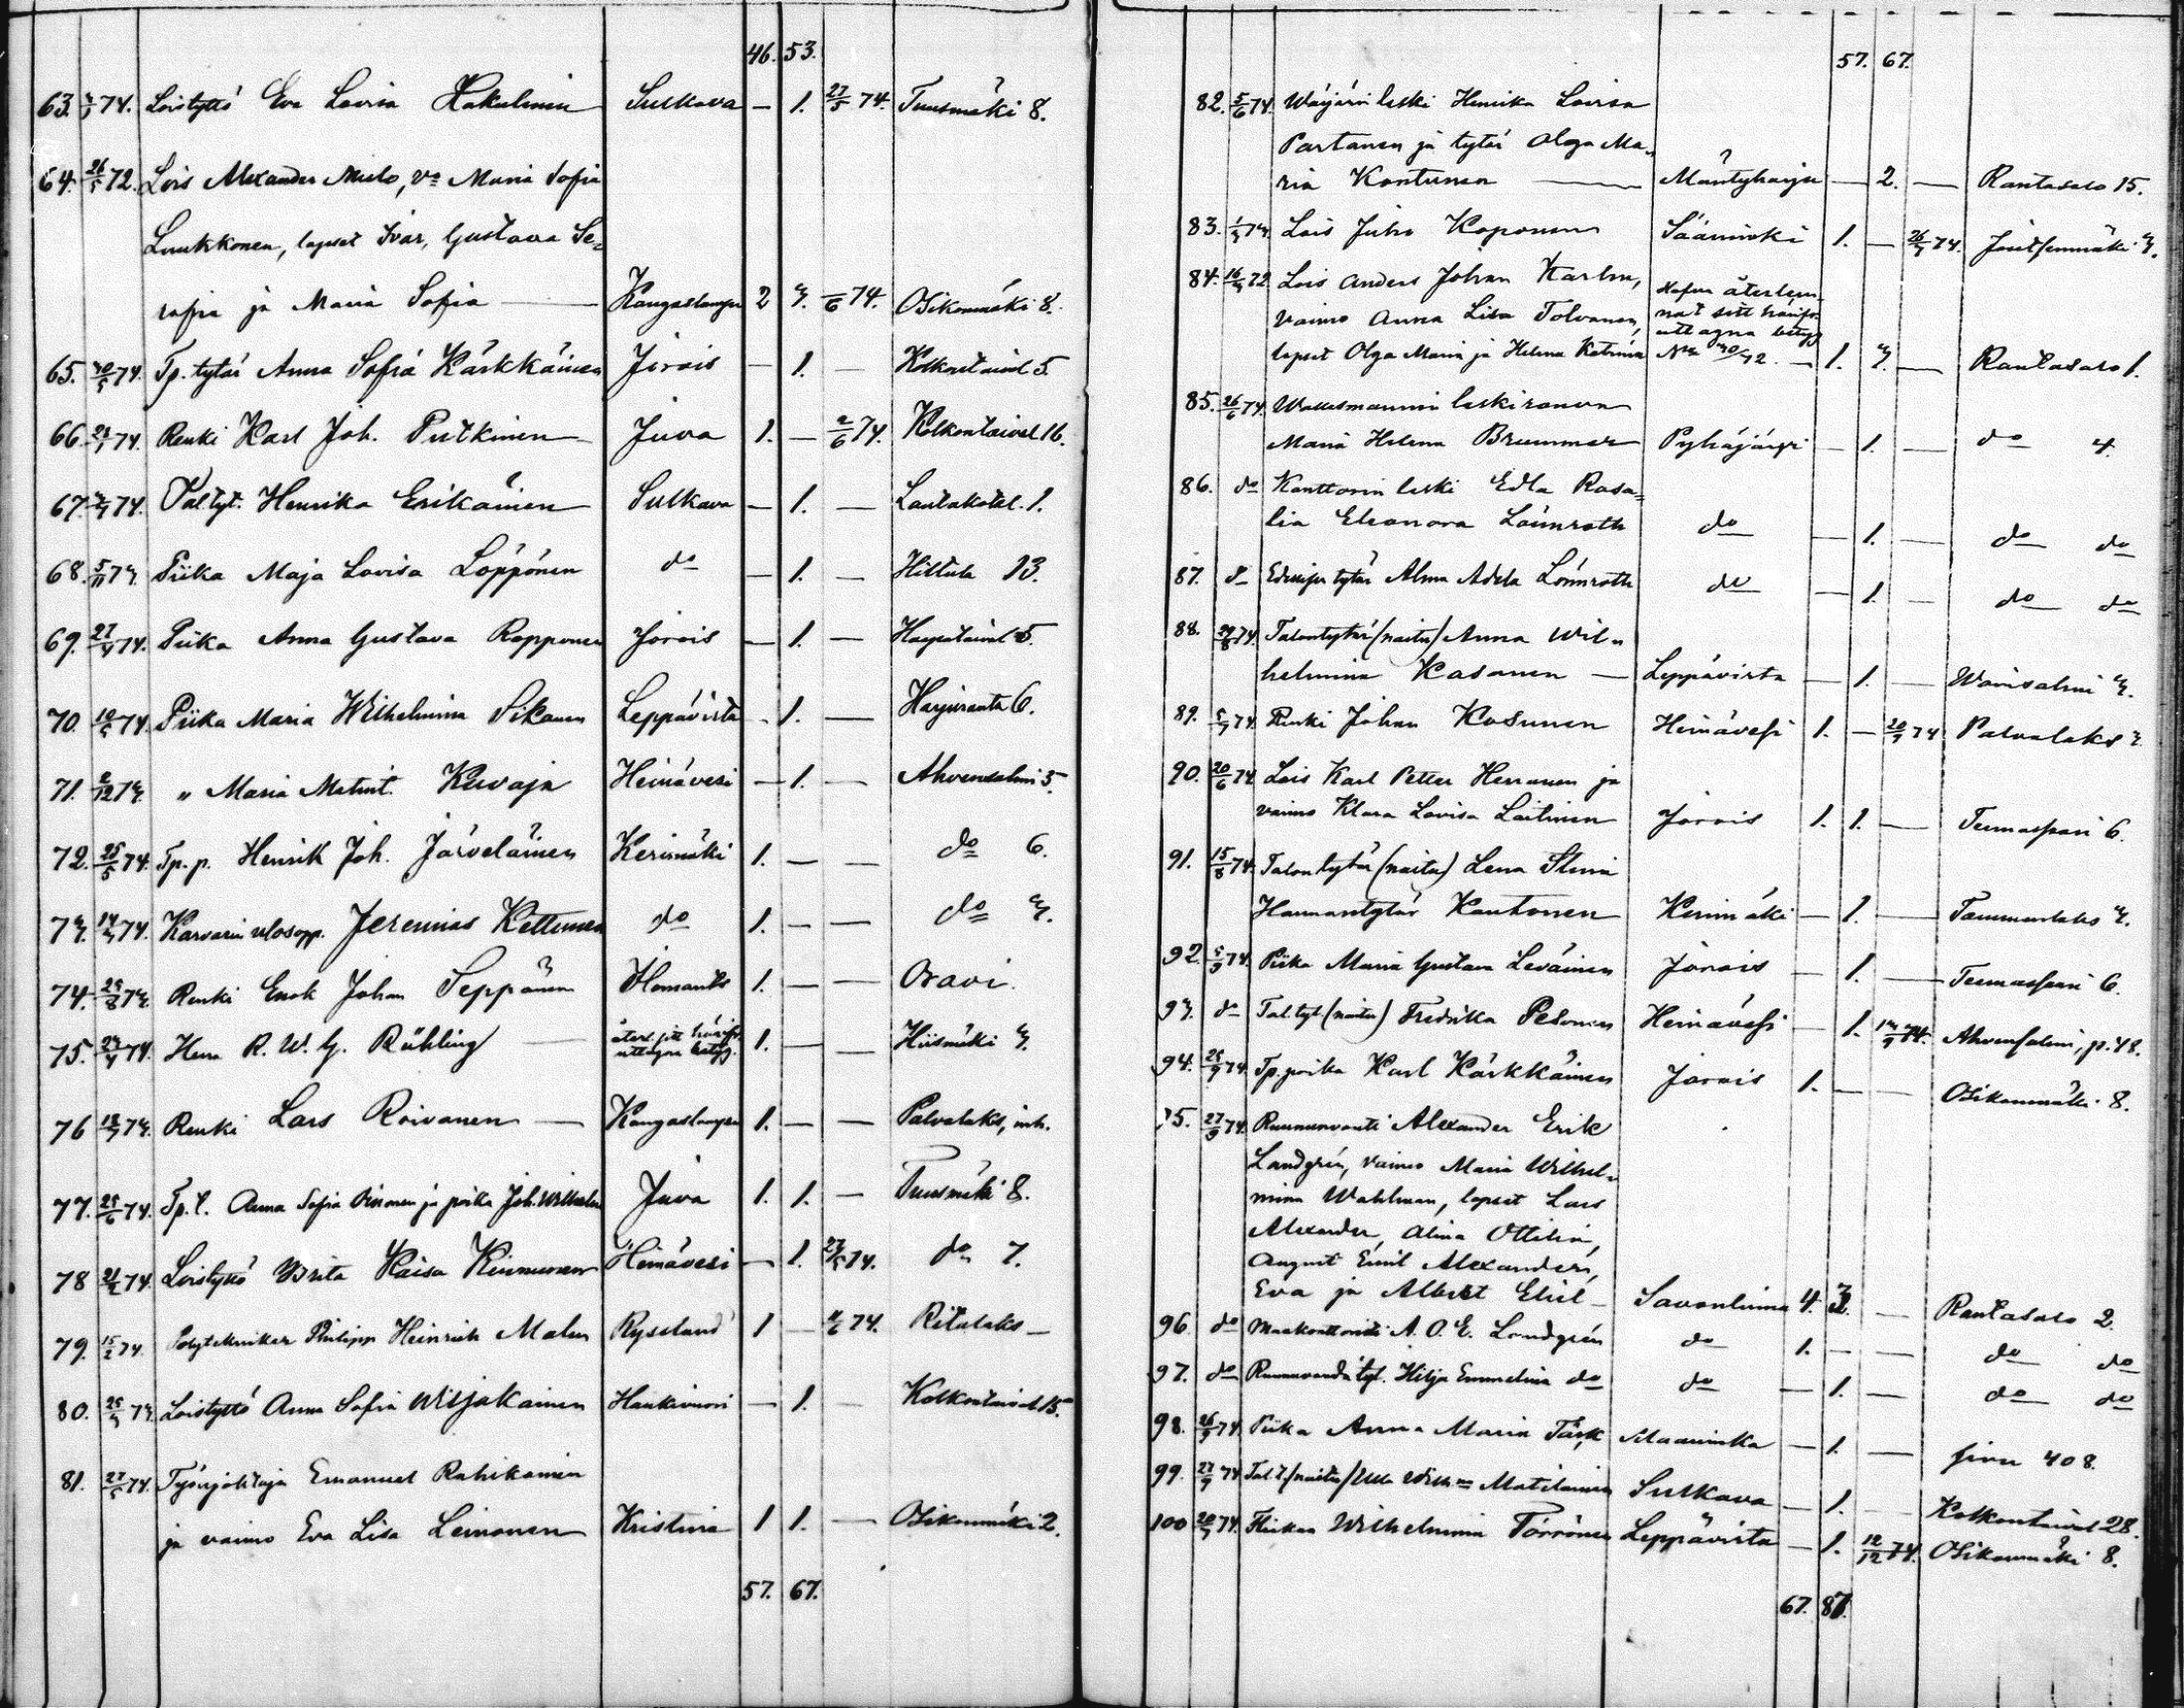 46. 53.
63. 74. Loistyttö Eva Lovisa Hakulinen Sulkava — 1. 27/5 74. Tuusmäki 8.
64. 26/5 72. Lois Alexander Mielo, vo Maria Sofia
Luukkonen, lapset Ivar, Gustava Se-
rafia ja Maria Sofia — Kangaslampi 2 3. —/6 74. Osikonmäki 8.
65. 30/5 74. Tp. tytär Anna Sofia Kärkkäinen Jorois — 1. — Kolkontaival 5.
66. 74. Renki Karl Joh. Putkinen Juva 1. — 2/6 74. Kolkontaival 16.
67. 74. Tal tyt. Henrika Erikäinen Sulkava — 1. — Lautakotal. 1.
68. 5/11 73. Piika Maja Lovisa Löppönen do — 1. — Hiltula 13.
69. 27/4 74. Piika Anna Gustava Ropponen Jorois — 1. — Haapataival 5.
70. 10/5 74. Piika Maria Wilhelmina Sikanen Leppävirta — 1. — Harjuranta 6.
71. 2/12 73. „ Maria Matint. Kuvaja Heinävesi — 1. — Ahvensalmi 5.
72. 25/5 74. Tp. p. Henrik Joh. Järveläinen Kerimäki 1. — — do 6.
73. 14/3 74. Karvarin ulosopp. Jeremias Kettunen do 1. — — do 3.
74. 25/8 73. Renki Enok Johan Seppänen Ilomants 1. — — Oravi.
75. 23/4 74. Herra R. W. G. Rühling — återl. sitt härifr. uttagna betyg. 1. — — Hiismäki 3.
76 13/7 73. Renki Lars Roivanen — Kangaslampi 1. — — Palvalaks, inh.
77. 25/6 74. Tp. t. Anna Sofia Piironen ja poika Joh. Wilhelm Juva 1. 1. — Tuusmäki 8.
78 74. Loistyttö Brita Kaisa Kinnunen Heinävesi — 1. 27/5 74. do 7.
79. 15/2 74. Polytekniker Philipp Heinrich Malm Ryssland 1 — 4/6 74. Ritulaks —
80. 25/3 73. Loistyttö Anna Sofia Wiljakainen Haukivuori — 1. — Kolkontaival 15.
81. 27/5 74. Työnjohtaja Emanuel Rahikainen
ja vaimo Eva Lisa Leinonen Kristina 1 1. — Osikonmäki 2.
57. 67.
57. 67.
82. 5/6 74. Wääjärin leski Henrika Lovisa
Partanen ja tytär Olga Ma-
ria Kontunen — Mäntyharju — 2. — Rantasalo 15.
83. 74. Lois Juho Koponen Sääminki 1. — 26/7 74. Joutsenmäki 3.
84. 16/3 72 Lois Anders Johan Karhu,
vaimo Anna Lisa Tolvanen,
lapset Olga Maria ja Helena Katrina
Hafva återlem-
nat sitt härifr.
uttagna betyg
No 30/72. — 1. 3. — Rantasalo 1.
85. 26/6 74. Wallesmannin leskirouva
Maria Helena Brummer Pyhäjärvi — 1. — do 4.
86. do Kanttorin leski Edla Rosa-
lia Eleonora Lönnroth do — 1. — do do
87. do Edesm. tytär Alma Adela Lönnroth do — 1. — do do
88. 29/8 74. Talontytär (naitu) Anna Wil-
helmina Kasanen — Leppävirta — 1. — Warisalmi 3.
89. 5/7 74. Renki Johan Kosunen Heinävesi 1. — 20/9 74 Palvalaks 3.
90. 20/6 74. Lois Karl Petter Hernanen ja
vaimo Klara Lovisa Laitinen Jorois 1. 1. — Teemassaari 6.
91. 15/8 74. Talontytär (naitu) Lena Stina
Hermantytär Kautonen Kerimäki — 1. — Tammenlaks 3.
92. 5/9 74. Piika Maria Gustava Leväinen Jorois — 1. — Teemassaari 6.
93. do Tal. tyt. (naitu) Fredrika Pesonen Heinävesi — 1. 13/9 74. Ahvensalmi, p. 48.
94. 25/9 74. Tp. poika Karl Kärkkäinen Jorois 1. — — Osikonmäki 8.
95. 27/9 74. Ruununvouti Alexander Erik
Landgrén, vaimo Maria Wilhel-
mina Wahlman, lapset Lars
Alexander, Alina Ottilia,
August Emil Alexander,
Eva ja Albert Eliel — Savonlinna 4. 3. — Rantasalo 2.
96. do Maakonttoristi A. O. E. Landgrén do 1. — — do do
97. do Ruunuvoudin tyt. Hilja Emmelina do do — 1. — do do
98. 26/9 74. Piika Anna Maria Täsk Maaninka — 1. — sivu 408.
99. 27/9 74. Tal. t. (naitu) Ulla Wilh:na Matilainen Sulkava — 1. — Kolkontaival 28.
100 20/9 74. Flickan Wilhelmina Törrönen Leppävirta — 1. 12/12 74. Osikonmäki 8.
67. 87.